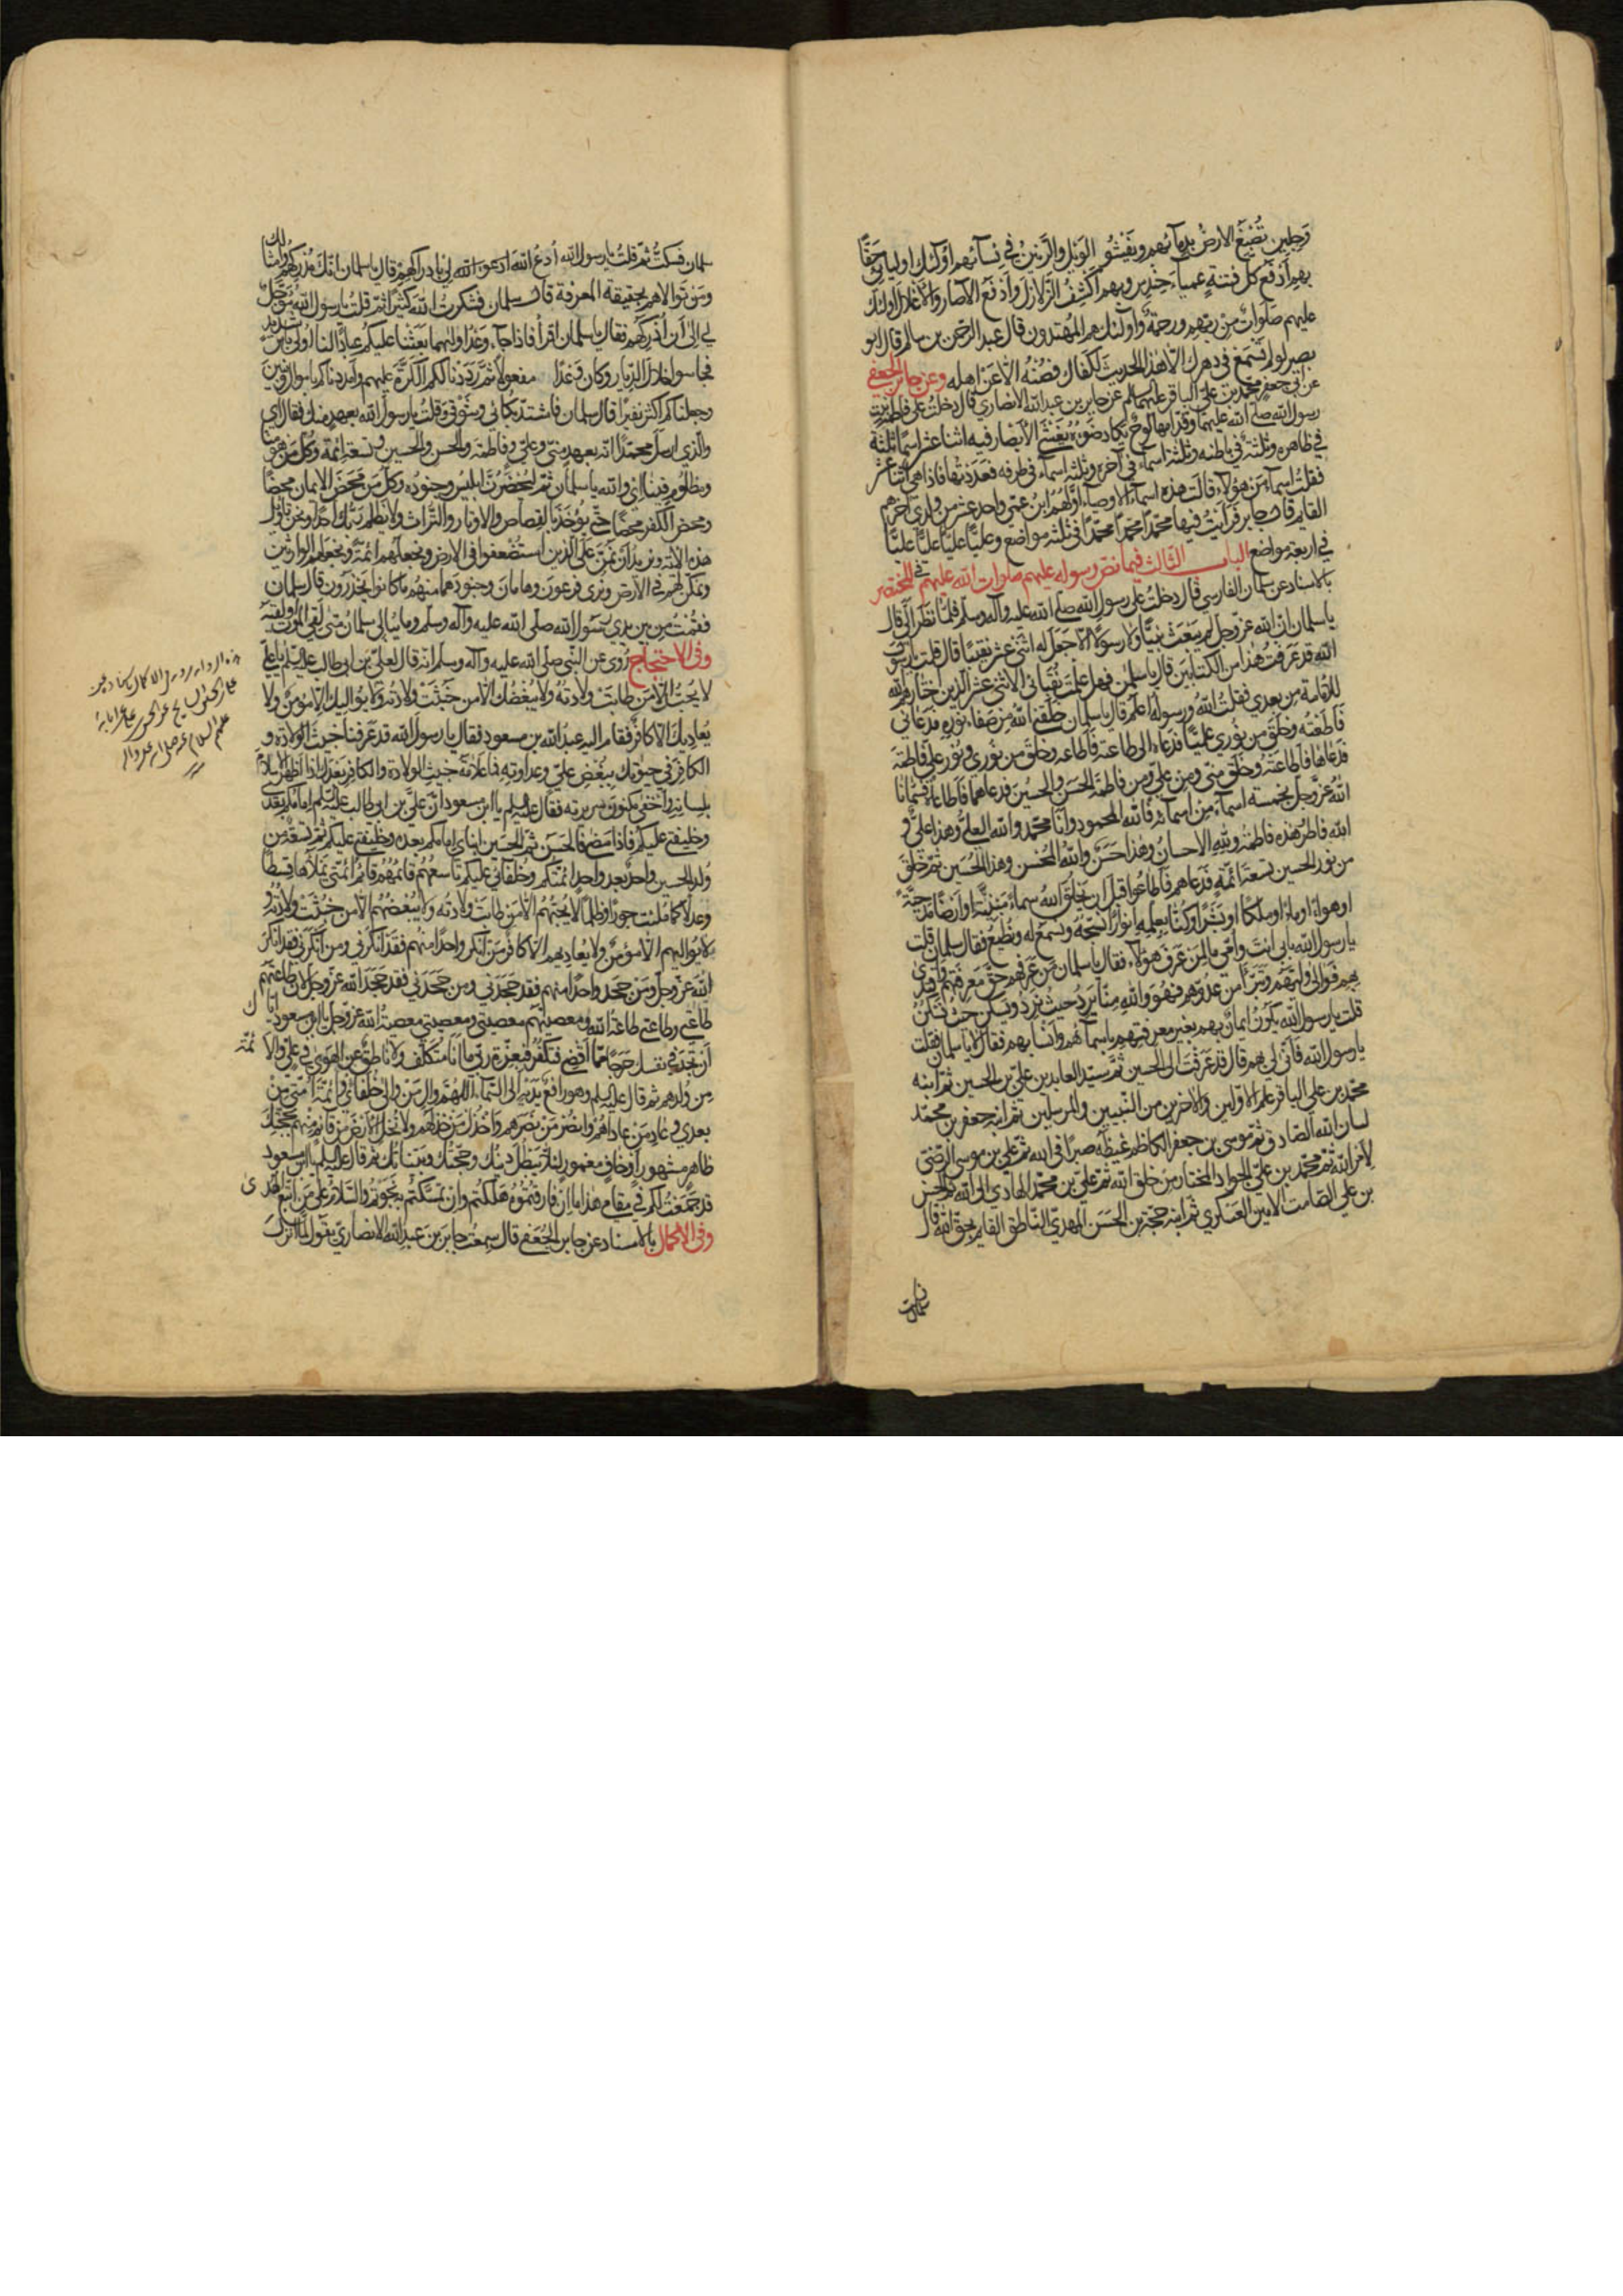 وَجِلين تُصْبَغُ الارضُ بدمآئهم ويَفْشُو الوَيْلُ والرَّنينُ في نسآئهم اولئك اوليائي حقًّا
بهم اَدْفَع كلّ فتنةٍ عمياء حِنْدِسٍ وبهم اكشِفُ الزّلازلَ واَدْفَع الآصار والاغلال اولئك
عليهم صلواتٌ من ربّهم ورحمةٌ واولئك هم المهتدون قال عبد الرّحمن بن سالم قال ابو
بصير لو لم تَسْمَعْ في دهرك الّا هذا الحديث لكفاك فصُنْهُ الّا عَنْ اهله وعن جابر الجعفي
عن ابي جعفر محمّد بن عليّ الباقر عليهما السلم عن جابر بن عبد الله الانصاري قال دخلتُ على فاطمة بنت
رسول الله صلّى الله عليهما وقدّامها لوح يكاد ضَوْءُه يَغْشَى الأبصار فيه اثنا عشر اسمًا ثلثة
في ظاهره وثلثة في باطنه وثلثة اسماء في آخره وثلثة اسماء في طرفه فعَدَدْتُها فاذا هي اثنا عشر
فقلتُ اسماء مَن هؤلاء قالت هذه اسماء الاوصياء اوّلهم ابنُ عمّي واحد عشر من ولدي آخرهم
القايم قال جابر فرأيتُ فيها محمّدًا محمّدًا محمّدًا في ثلثة مواضع وعليًّا عليًّا عليًّا عليًّا
في اربعة مواضع الباب الثّالث فيما نصّ رسوله عليهم صلوات الله عليهم في المختصر
بالاسناد عن سلمان الفارسي قال دخلتُ على رسول الله صلّى الله عليه وآله وسلّم فلمّا نظر اليّ قال
يا سلمان انّ الله عزّ وجلّ لم يَبعَث نبيًّا ولا رسولًا الّا جَعَل له اثنى عشر نقيبًا قال قلت يا رسول
الله قد عَرَفتُ هذا من الكتابَين قال يا سلمان فهل علمتَ نُقَبائي الاثنى عشر الّذين اختارهم الله
للامامة من بعدي فقلت الله ورسوله اعلم قال يا سلمان خلقني الله من صَفاء نوره فدعاني
فاطعتُه وخلق من نوري عليًّا فدعاه الى طاعته فاطاعه وخلق من نوري ونور عليّ فاطمة
فدعاها فاطاعته وخلق منّي ومن عليّ ومن فاطمة الحسن والحسين فدعاهما فاطاعاه فسمّانا
الله عزّ وجلّ بخمسة اسماء من اسمائه فالله المحمود وانا محمّد والله العليّ وهذا عليّ و
الله فاطر وهذه فاطمة ولله الاحسان وهذا حسن والله المحسن وهذا الحسين ثمّ خلق
من نور الحسين تسعة ائمّة فدعاهم فاطاعوا قبل ان يخلق الله سماءً مبنيّة او ارضًا مدحيّة
او هواءً او ماءً او ملكًا او بشرًا وكنّا بعلمه انوارًا نسبّحه ونسمع له ونطيع فقال سلمان قلت
يا رسول الله بابي انت وامّي ما لمن عرف هؤلاء فقال يا سلمان من عرفهم حقّ معرفتهم واقتدى
بهم فوالى وليّهم وتبرّأ من عدوّهم فهو والله منّا يَرِدُ حيث نَرِدُ ويَسكن حيث نَسكن
قلت يا رسول الله يكون ايمانٌ بهم بغير معرفتهم باسمائهم وانسابهم فقال لا يا سلمان فقلت
يا رسول الله فانّى لي بهم قال قد عرفتَ الى الحسين ثمّ سيّد العابدين عليّ بن الحسين ثمّ ابنه
محمّد بن علي الباقر علم الاوّلين والآخرين من النّبيين والمرسلين ثمّ ابنه جعفر بن محمّد
لسان الله الصّادق ثمّ موسى بن جعفر الكاظم غيظه صبرًا في الله ثمّ عليّ بن موسى الرّضى
لامر الله ثمّ محمّد بن عليّ الجواد المختار من خلق الله ثمّ عليّ بن محمّد الهادي الى الله ثمّ الحسن
بن علي الصّامت الامين العسكري ثمّ ابنه حجّة بن الحسن المهديّ النّاطق القايم بحقّ الله قال
سلمان فسكتُّ ثمّ قلت يا رسول الله اُدعُ الله لي بادراكهم قال يا سلمان انّك مُدركهم وامثالك
ومن توالاهم بحقيقة المعرفة قال سلمان فشكرتُ الله كثيرًا ثمّ قلتُ يا رسول الله مؤجّل
لي الى ان اُدركهم فقال يا سلمان اقرأ فاذا جاء وعد اولاهما بعثنا عليكم عبادًا لنا اولي بأس شديد
فجاسوا خلال الدّيار وكان وعدًا مفعولًا ثمّ رددنا لكم الكرّة عليهم وامددناكم باموال وبنين
وجعلناكم اكثر نفيرًا قال سلمان فاشتدّ بكائي وشَوْقي وقلتُ يا رسول الله بعهدٍ منك فقال اي
والّذي ارسل محمّدًا انّه بعهد منّي وعليّ وفاطمة والحسن والحسين وتسعة ائمّة وكلّ من هو منّا
ومظلومٍ فينا اي والله يا سلمان ثمّ ليُحضَرَنَّ ابليسُ وجنوده وكلّ من محض الايمان محضًا
ومحض الكفر محضًا حتّى يؤخذ بالقصاص والاوتار والتّراث ولا يظلم ربّك احدًا ونحن تأويل
هذه الآية ونريد ان نمنّ على الّذين استضعفوا في الارض ونجعلهم ائمّة ونجعلهم الوارثين
ونمكّن لهم في الأرض ونُري فرعون وهامان وجنودهما منهم ما كانوا يحذرون قال سلمان
فقُمْتُ من بين يدي رسول الله صلّى الله عليه وآله وسلّم وما يُبالي سلمان متى لقي الموت او لقيه
وفي الاحتجاج رُوِيَ عن النّبي صلّى الله عليه وآله وسلّم انّه قال لعليّ بن ابي طالب عليه السّلم يا عليّ
لا يحبّك الّا من طابت ولادته ولا يُبغضك الّا من خبثت ولادته ولا يواليك الّا مؤمن ولا
يُعاديك الّا كافر فقام اليه عبد الله بن مسعود فقال يا رسول الله قد عرفنا خبيث الولادة و
الكافر في حيوتك ببغض عليّ وعداوته فما علامة خبيث الولادة والكافر بعدك اذا اظهر الاسلام
بلسانه واخفى مكنون سريرته فقال عليه السلم يا ابن مسعود انّ عليّ بن ابي طالب عليه السلم امامكم بعدي
وخليفتي عليكم فاذا مضى فالحسن ثمّ الحسين ابناي امامكم بعده وخليفتي عليكم ثمّ تسعة من
ولد الحسين واحد بعد واحد ائمّتكم وخلفائي عليكم تاسعهم قائمهم قائم امّتي يملأها قسطًا
وعدلًا كما ملئت جورًا وظلمًا لا يحبّهم الّا من طابت ولادته ولا يُبغضهم الّا من خبثت ولادته و
لا يواليهم الّا مؤمن ولا يعاديهم الّا كافر من انكر واحدًا منهم فقد انكرني ومن انكرني فقد انكر
الله عزّ وجلّ ومن جحد واحدًا منهم فقد جحدني ومن جحدني فقد جحد الله عزّ وجلّ لان طاعتهم
طاعتي وطاعتي طاعة الله ومعصيتهم معصيتي ومعصيتي معصية الله عزّ وجلّ يا ابن مسعود ايّاك
أن تجد في نفسك حرجًا ممّا اقضي فتكفر فبعزّة ربّي ما انا متكلّف ولا ناطق عن الهوى في عليّ والائمّة
من ولدهم ثمّ قال عليه السلم وهو رافعٌ يدَيْه الى السّماء اللّهمّ والِ من والى خلفائي وائمّة امّتي من
بعدي وعادِ من عاداهم وانصر من نصرهم واخذل من خذلهم ولا تُخلِ الارض من قائم منهم بحجّتك
ظاهر مشهور او خافٍ مغمور لئلّا يبطل دينك وحجّتك وبيّناتك ثمّ قال عليه السلم يا ابن مسعود
قد جمعتُ لكم في مقامي هذا ما ان فارقتموه هلكتم وان تمسّكتم به نجوتم والسّلام على من اتّبع الهدى
وفي الاكمال بالاسناد عن جابر الجُعفي قال سمعتُ جابر بن عبد الله الانصاري يقول لمّا انزل